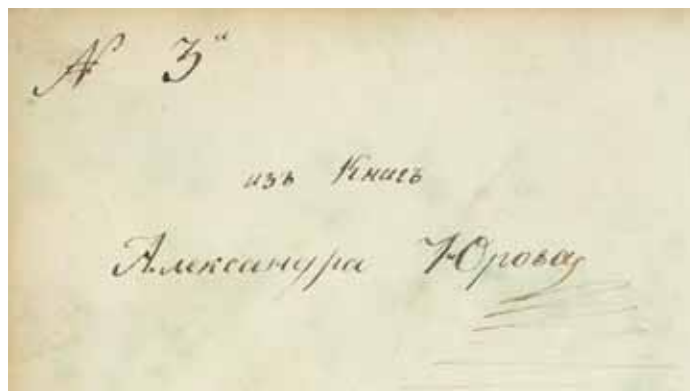 № 3"
изъ Книгъ
Александра Юрова